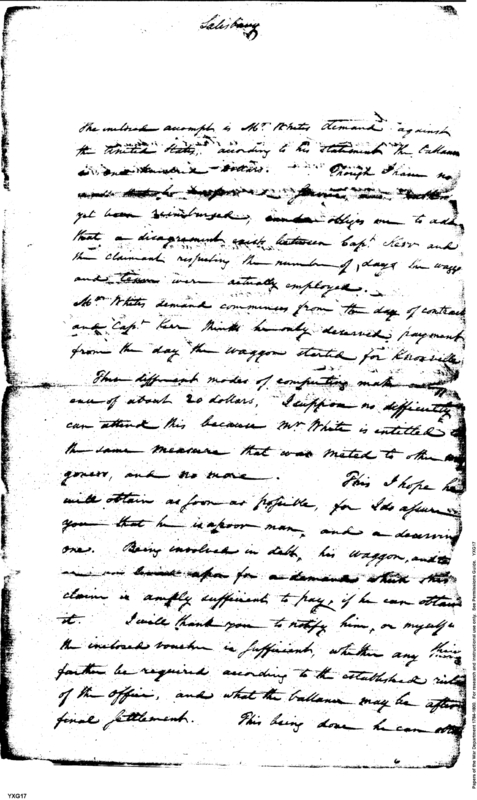 Salisbury
The inclosed accompt is Mr. Whites demand against
the United States, according to his statement the ballance
is one hundred Dollars. Though I have no
yet been reimbursed, candor obliges me to add
that a disagreement exists between Capt. Kerr and
the claimant respecting the number of days his waggon
and team were actually employed.
Mr. Whites demand commences from the day of contract
and Capt. Kerr thinks he only deserved payment
from the day the waggon started for Knoxville
These different modes of computing make a
ence of about 20 dollars, I suppose no difficulty
can attend this because Mr. White is intitled to
the same measure that was meted to other
goners, and no more. This I hope he
will obtain as soon as possible, for I do assure
you that he is a poor man, and a deserving
one. Being involved in debt, his waggon, and
upon for a demand which this
claim is amply sufficient to pay, if he can obtain
it. I will thank you to notify him, or myself
the inclosed voucher is sufficient, whether any thing
farther be required according to the established rules
of the office, and what the ballance may be after
final settlement. This being done he can
YXG17
Papers of the War Department 1784-1800. For research and instructional use only. See Permissions Guide. YXG17